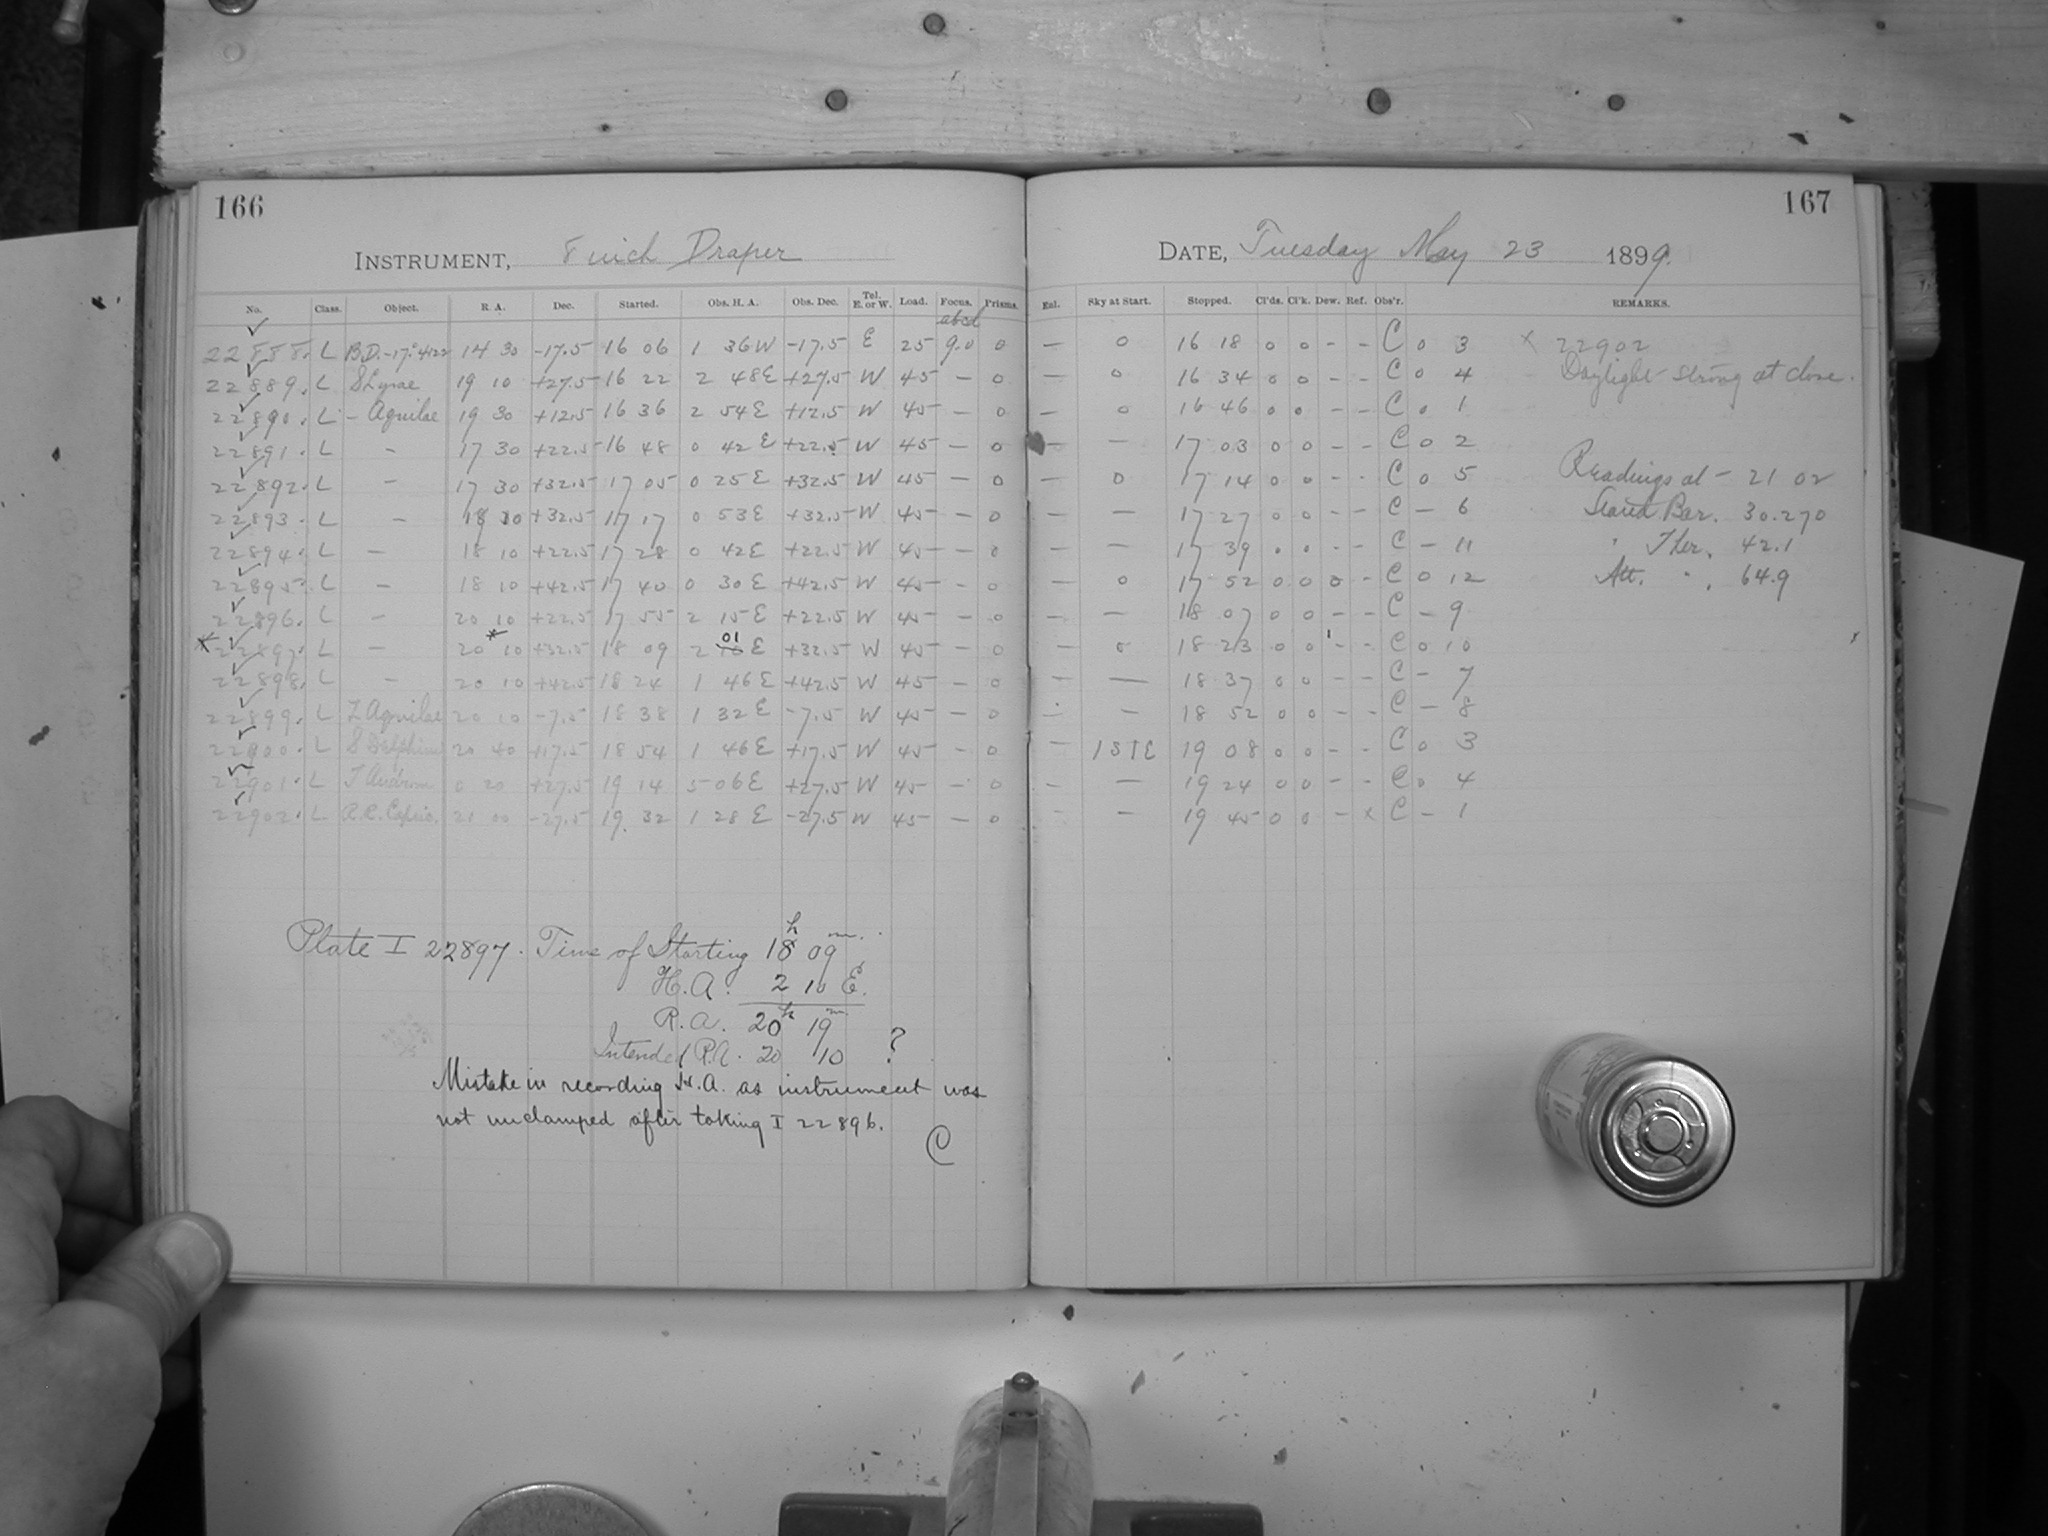 166
INSTRUMENT, 8 inch Draper
No. Class. Object. R. A. Dec. Started. Obs. H. A. Obs. Dec. Tel. E. or W. Load. Focus. Prisms.
abcd
22888. L B.D.-17°4122 14 30 -17.5 16 06 1 36W -17.5 E 25 9.0 0
22889. L S Lyrae 19 10 +27.5 16 22 2 48E +27.5 W 45 - 0
22890. L - Aquilae 19 30 +12.5 16 36 2 54E +12.5 W 45 - 0
22891. L - 17 30 +22.5 16 48 0 42E +22.5 W 45 - 0
22892. L - 17 30 +32.5 17 05 0 25E +32.5 W 45 - 0
22893. L - 18 10 +32.5 17 17 0 53E +32.5 W 45 - 0
22894. L - 18 10 +22.5 17 28 0 42E +22.5 W 45 - 0
22895. L - 18 10 +42.5 17 40 0 30E +42.5 W 45 - 0
22896. L - 20 10 +22.5 17 55 2 15E +22.5 W 45 - 0
* 22897. L - 20 * 10 +32.5 18 09 2 01 E +32.5 W 45 - 0
22898. L - 20 10 +42.5 18 24 1 46E +42.5 W 45 - 0
22899. L Z Aquilae 20 10 -7.5 18 38 1 32E -7.5 W 45 - 0
22900. L S Delphini 20 40 +17.5 18 54 1 46E +17.5 W 45 - 0
22901. L T Androm 0 20 +27.5 19 14 5 06E +27.5 W 45 - 0
22902. L R.R. Capric. 21 00 -27.5 19 32 1 28E -27.5 W 45 - 0
Plate I 22897. Time of Starting 18h 09m.
H.A. 2 10 E.
R.A. 20h 19m
Intended R.A. 20 10 ?
Mistake in recording H.A. as instrument was
not unclamped after taking I 22896.
C
167
DATE, Tuesday May 23 1899.
Enl. Sky at Start. Stopped. Cl'ds. Cl'k. Dew. Ref. Obs'r. REMARKS.
- 0 16 18 0 0 - - C 0 3 x 22902
- 0 16 34 0 0 - - C 0 4 Daylight strong at close.
- 0 16 46 0 0 - - C 0 1
- - 17 03 0 0 - - C 0 2
- 0 17 14 0 0 - - C 0 5 Readings at - 21 02
- - 17 27 0 0 - - C - 6 Stand Bar. 30.270
- - 17 39 0 0 - - C - 11 " Ther. 42.1
- 0 17 52 0 0 0 - C 0 12 Att. " . 64.9
- - 18 07 0 0 - - C - 9
- 0 18 23 0 0 - - C 0 10
- - 18 37 0 0 - - C - 7
- - 18 52 0 0 - - C - 8
- 1STE 19 08 0 0 - - C 0 3
- - 19 24 0 0 - - C 0 4
- - 19 45 0 0 - x C - 1